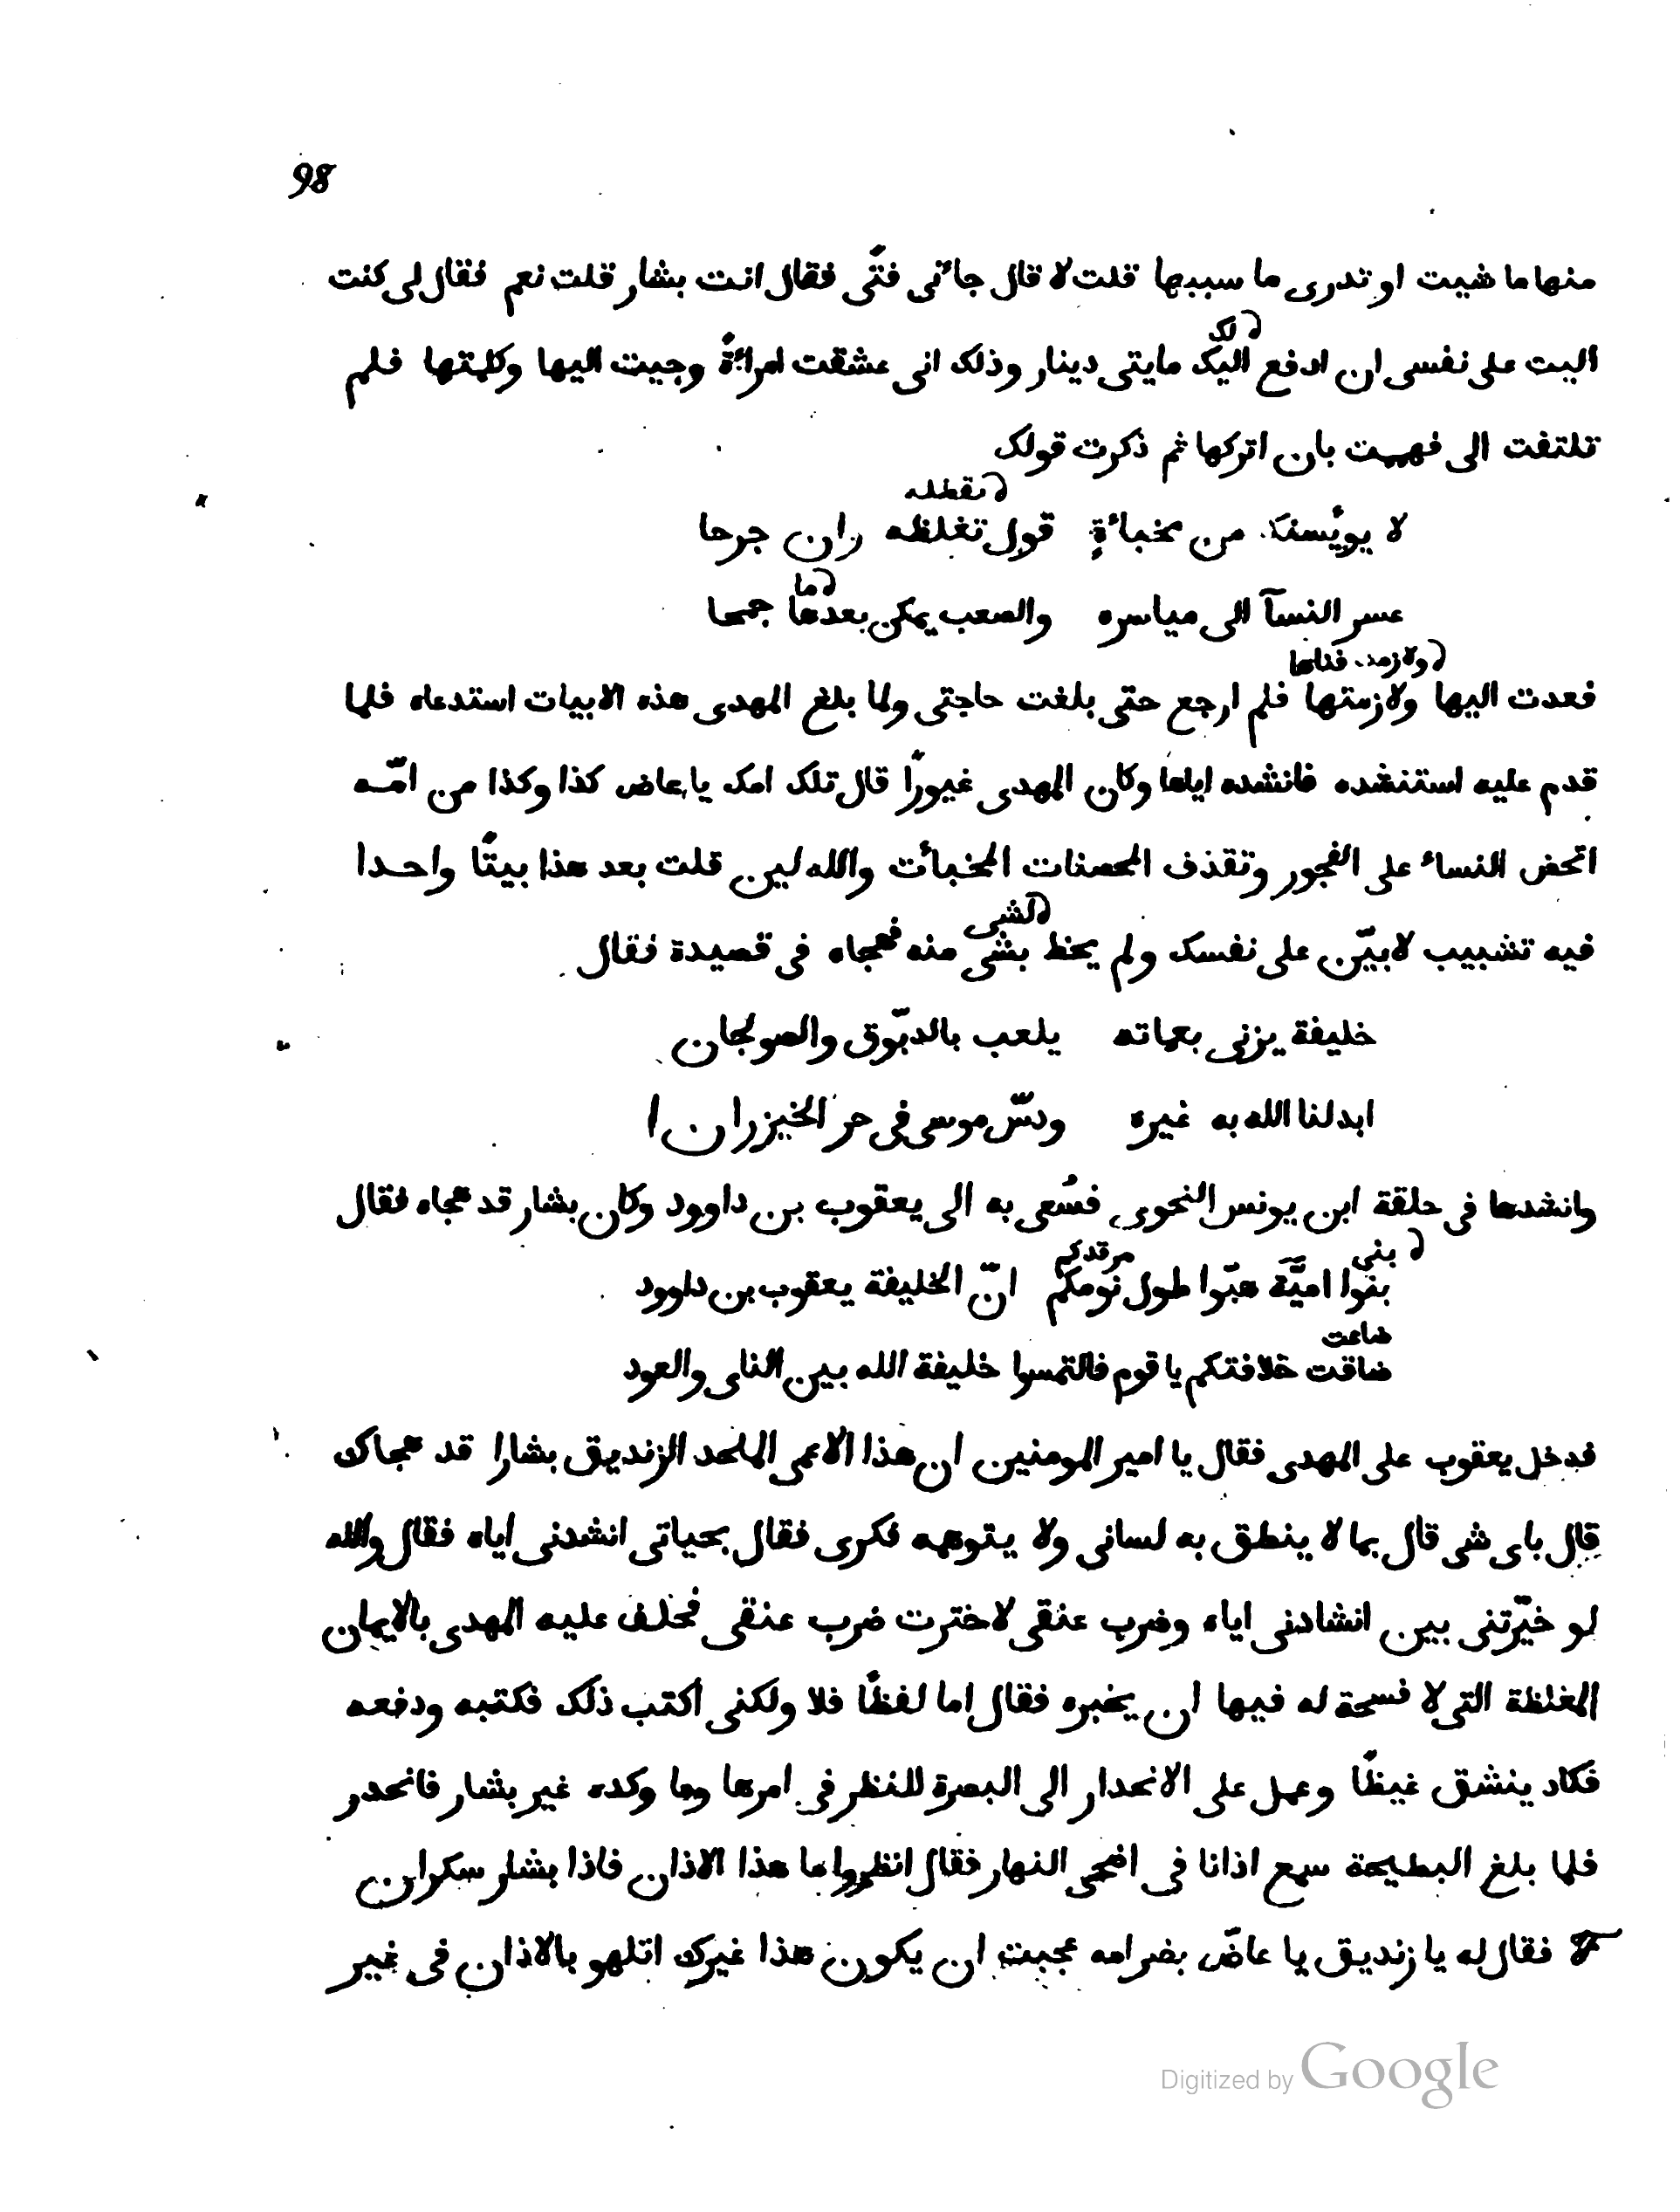 98
منها ما شيت او تدرى ما سببها قلت لا قال جاءنى فتًى فقال انت بشار قلت نعم فقال لى كنت
لك
اليت على نفسى ان ادفع اليك مايتى دينار وذلك انى عشقت امراءةً وجيت اليها وكلمتها فلم
تلتفت الى فهمت بان اتركها ثم ذكرت قولك
لا يويسنك من مخباءةٍ قول تغلظه وان جرحا
ما
عسر النسآ الى مياسره والصعب يمكن بعدها جمحا
فعدت اليها ولازمتها فلم ارجع حتى بلغت حاجتى ولما بلغ المهدى هذه الابيات استدعاه فلما
قدم عليه استنشده فانشده اياها وكان المهدى غيورًا قال تلك امك يا عاض كذا وكذا من امّه
اتحض النساء على الفجور وتقذف المحصنات المخبات والله لين قلت بعد هذا بيتًا واحدا
الشى
فيه تشبيب لابيّن على نفسك ولم يحظ بشى منه فهجاه فى قصيدة فقال
خليفة يزنى بعماته يلعب بالدبّوق والصولجان
ابدلنا الله به غيره ودسّ موسى فى حر الخيزران ا
وانشدها فى حلقة ابن يونس النحوى فسُعى به الى يعقوب بن داوود وكان بشار قد هجاه فقال
بنى مرقدكم
بنوا اميّة هبّوا طول نومكم انّ الخليفة يعقوب بن داوود
ضاعت
ضاقت خلافتكم يا قوم فالتمسوا خليفة الله بين الناى والعود
فدخل يعقوب على المهدى فقال يا امير المومنين ان هذا الاعمى الملحد الزنديق بشارا قد هجاك
قال باى شى قال بما لا ينطق به لسانى ولا يتوهمه فكرى فقال بحياتى انشدنى اياه فقال والله
لو خيّرتنى بين انشادنى اياه وضرب عنقى لاخترت ضرب عنقى فحلف عليه المهدى بالايمان
المغلظة التى لا فسحة له فيها ان يخبره فقال اما لفظًا فلا ولكنى اكتب ذلك فكتبه ودفعه
فكاد ينشق غيظًا وعمل على الانحدار الى البصرة للنظر فى امرها وما وكده غير بشار فانحدر
فلما بلغ البطيحة سمع اذانا فى اضحى النهار فقال انظروا ما هذا الاذان فاذا بشار سكران
فقال له يا زنديق يا عاضّ بضر امه عجبت ان يكون هذا غيرك اتلهو بالاذان فى غير
Digitized by Google